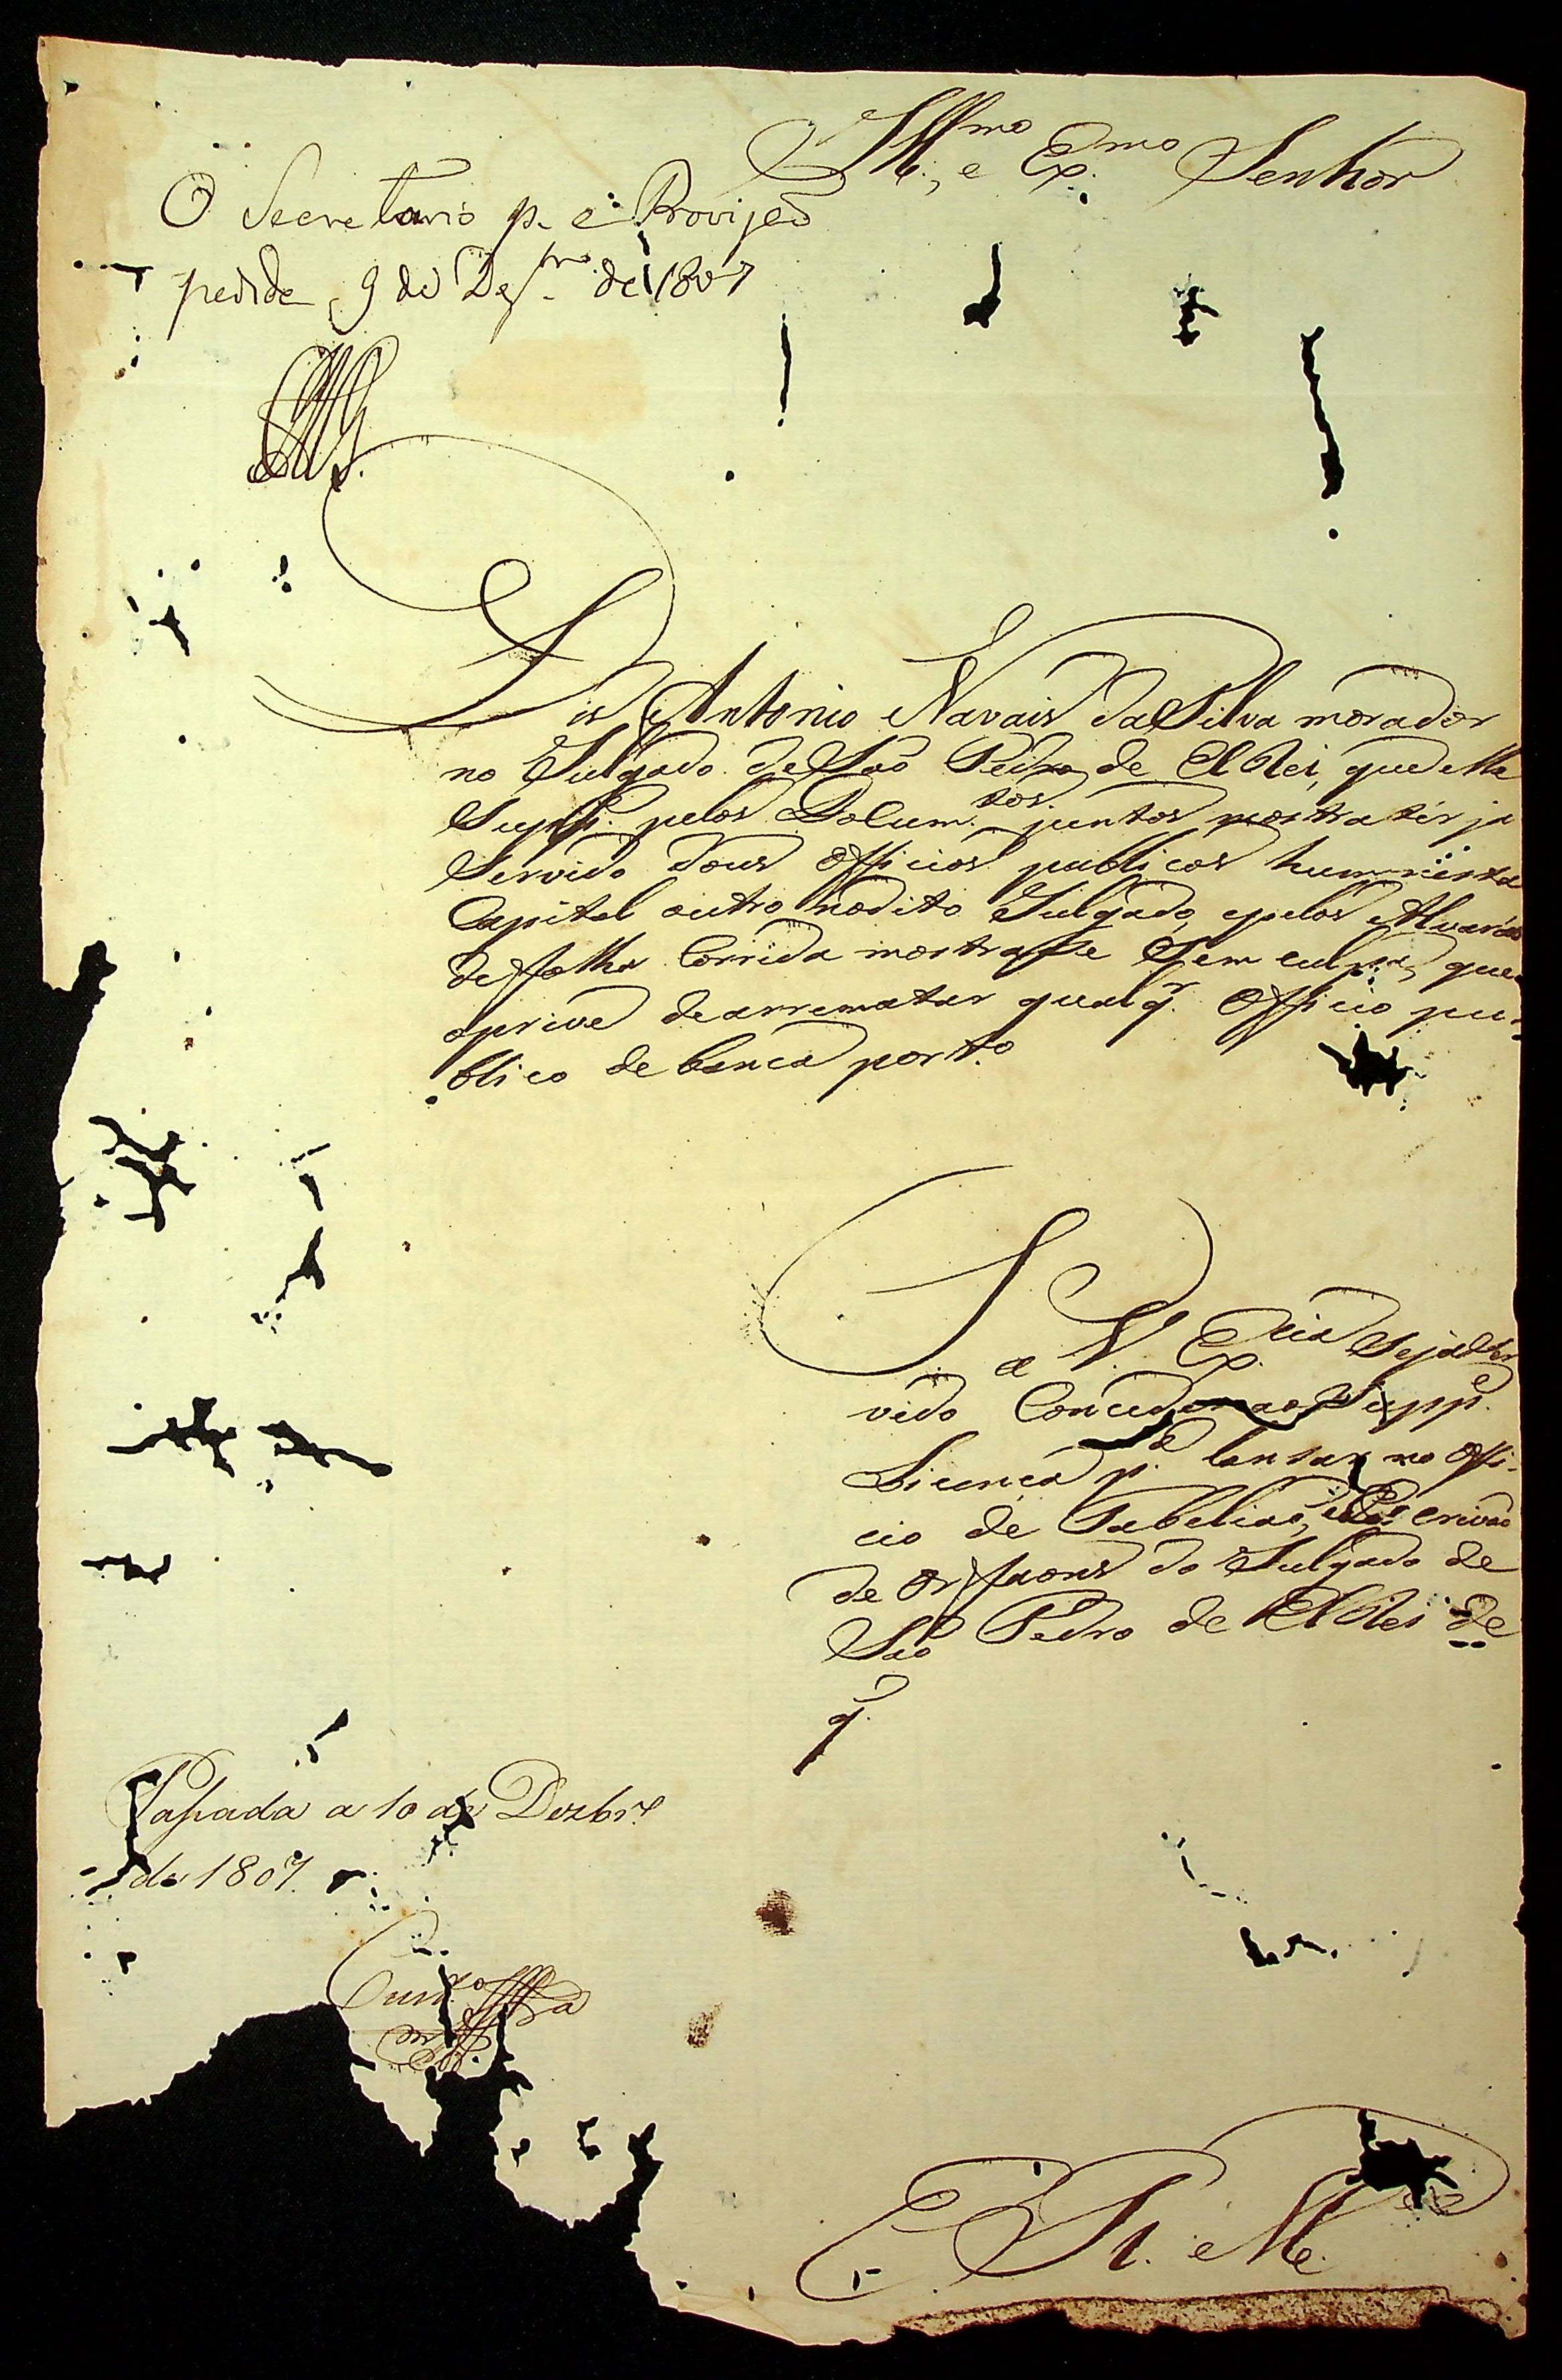 Ill.mo, e Ex.mo Senhor
O Secretario p. e Provizaõ
pedida, 9 de Dez.bro de 1807
Dis Antonio Navais da Silva morador
no Julgado de Saõ Pedro de El Rei, que elle
Supp.e pelos Docum.tos juntos mostra ter ja
Servido dous Officios publicos hum nesta
Capital outro no dito Julgado, e pelos Alvarás
de folha Corrida mostra se Sem culpa, que
o prive de arrematar qualq.r Officio pu-
blico de banca por tto
Se a V. Ex.cia Seja Ser
vido Conceder ao Supp.e
Licença p.a lansar no Offi-
cio de Tabeliaõ, e Escrivaõ
de Orfaons do Julgado de
Saõ Pedro de El Rei de
q.
Passada a 10 de Dezbr.o
de 1807
E. R. M.ce